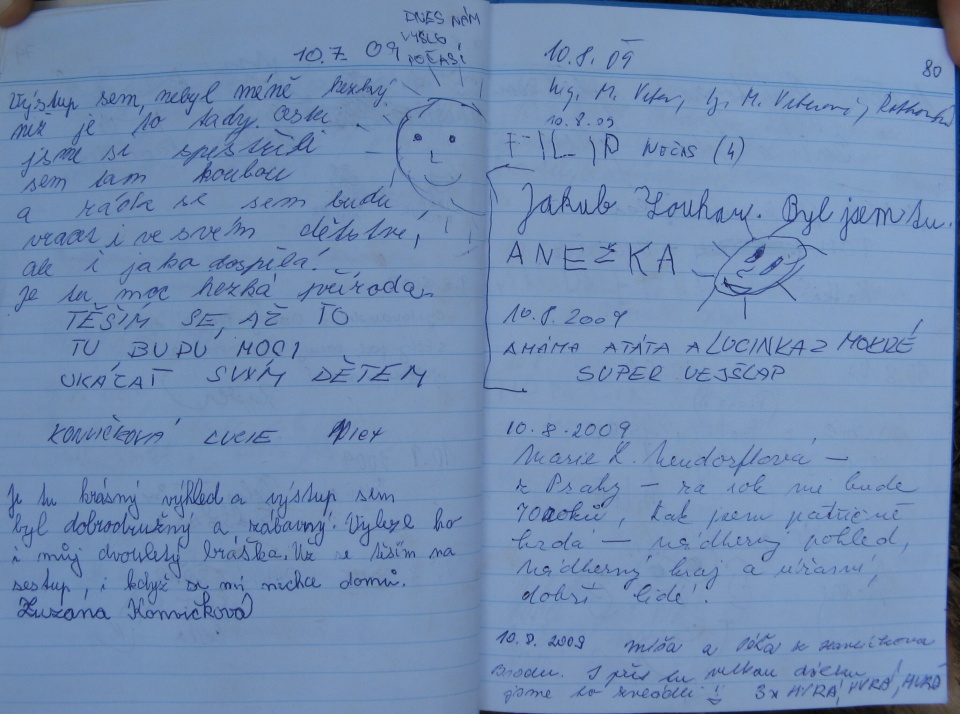 DNES NÁM
VYŠLO
POČASÍ
10.7. 09
Výstup sem, nebyl méně hezký
než je to tady.
jsme si zpestřili
sem tam houbou
a ráda se sem budu
vracet i ve svém dětství,
ale i jako dospělá.
Je tu moc hezká příroda,
TĚŠÍM SE, AŽ TO
TU BUDU MOCI
UKÁZAT SVÝM DĚTEM
KONVIČKOVÁ LUCIE
Je tu krásný výhled a výstup sem
byl dobrodružný a zábavný. Vylezl ho
i můj dvouletý bráška. Už se těším na
sestup, i když se mi nechce domů.
Zuzana Konvičková
80
10.8.09
Ing. M.
10.8.09
FILIP NOČAS (4)
Jakub Louhav. Byl jsem tu.
ANEŽKA
10.8.2009
AMÁMA ATÁTA A LUCINKA Z MOKRÉ
SUPER VEJŠLAP
10.8.2009
Marie
z Prahy – za rok mi bude
70 roků, tak jsem patřičně
hrdá – nádherný pohled,
nádherný kraj a úžasní,
dobří lidé.
10.8.2009 Míša a
Brodu. I přes tu velkou dálku
jsme to zvládli !! 3x HURÁ, HURÁ, HURÁ